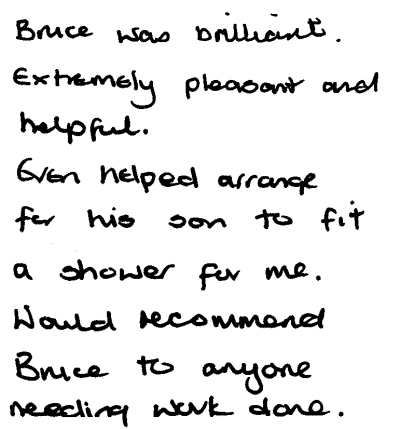 Bruce was brilliant.
Extremely pleasant and
helpful.
Even helped arrange
for his son to fit
a shower for me.
Would recommend
Bruce to anyone
needing work done.